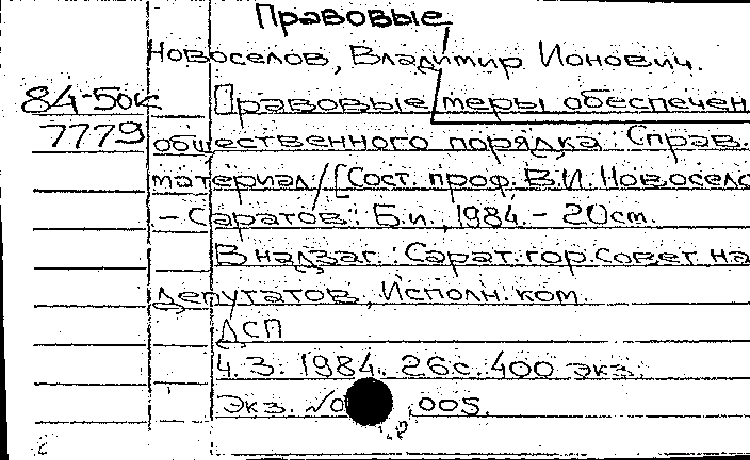 Правовые
Новоселов, Владимир Ионович.
84-50к Правовые меры обеспечен
7779 общественного порядка: Справ.
материал/[Сост. проф. В.И. Новосело
- Саратов: Б.и., 1984. - 20 ст.
В надзаг.: Сарат. гор. Совет на
депутатов, Исполн. ком.
ДСП
4.3. 1984. 26с. 400 экз.
Экз. №0 005.